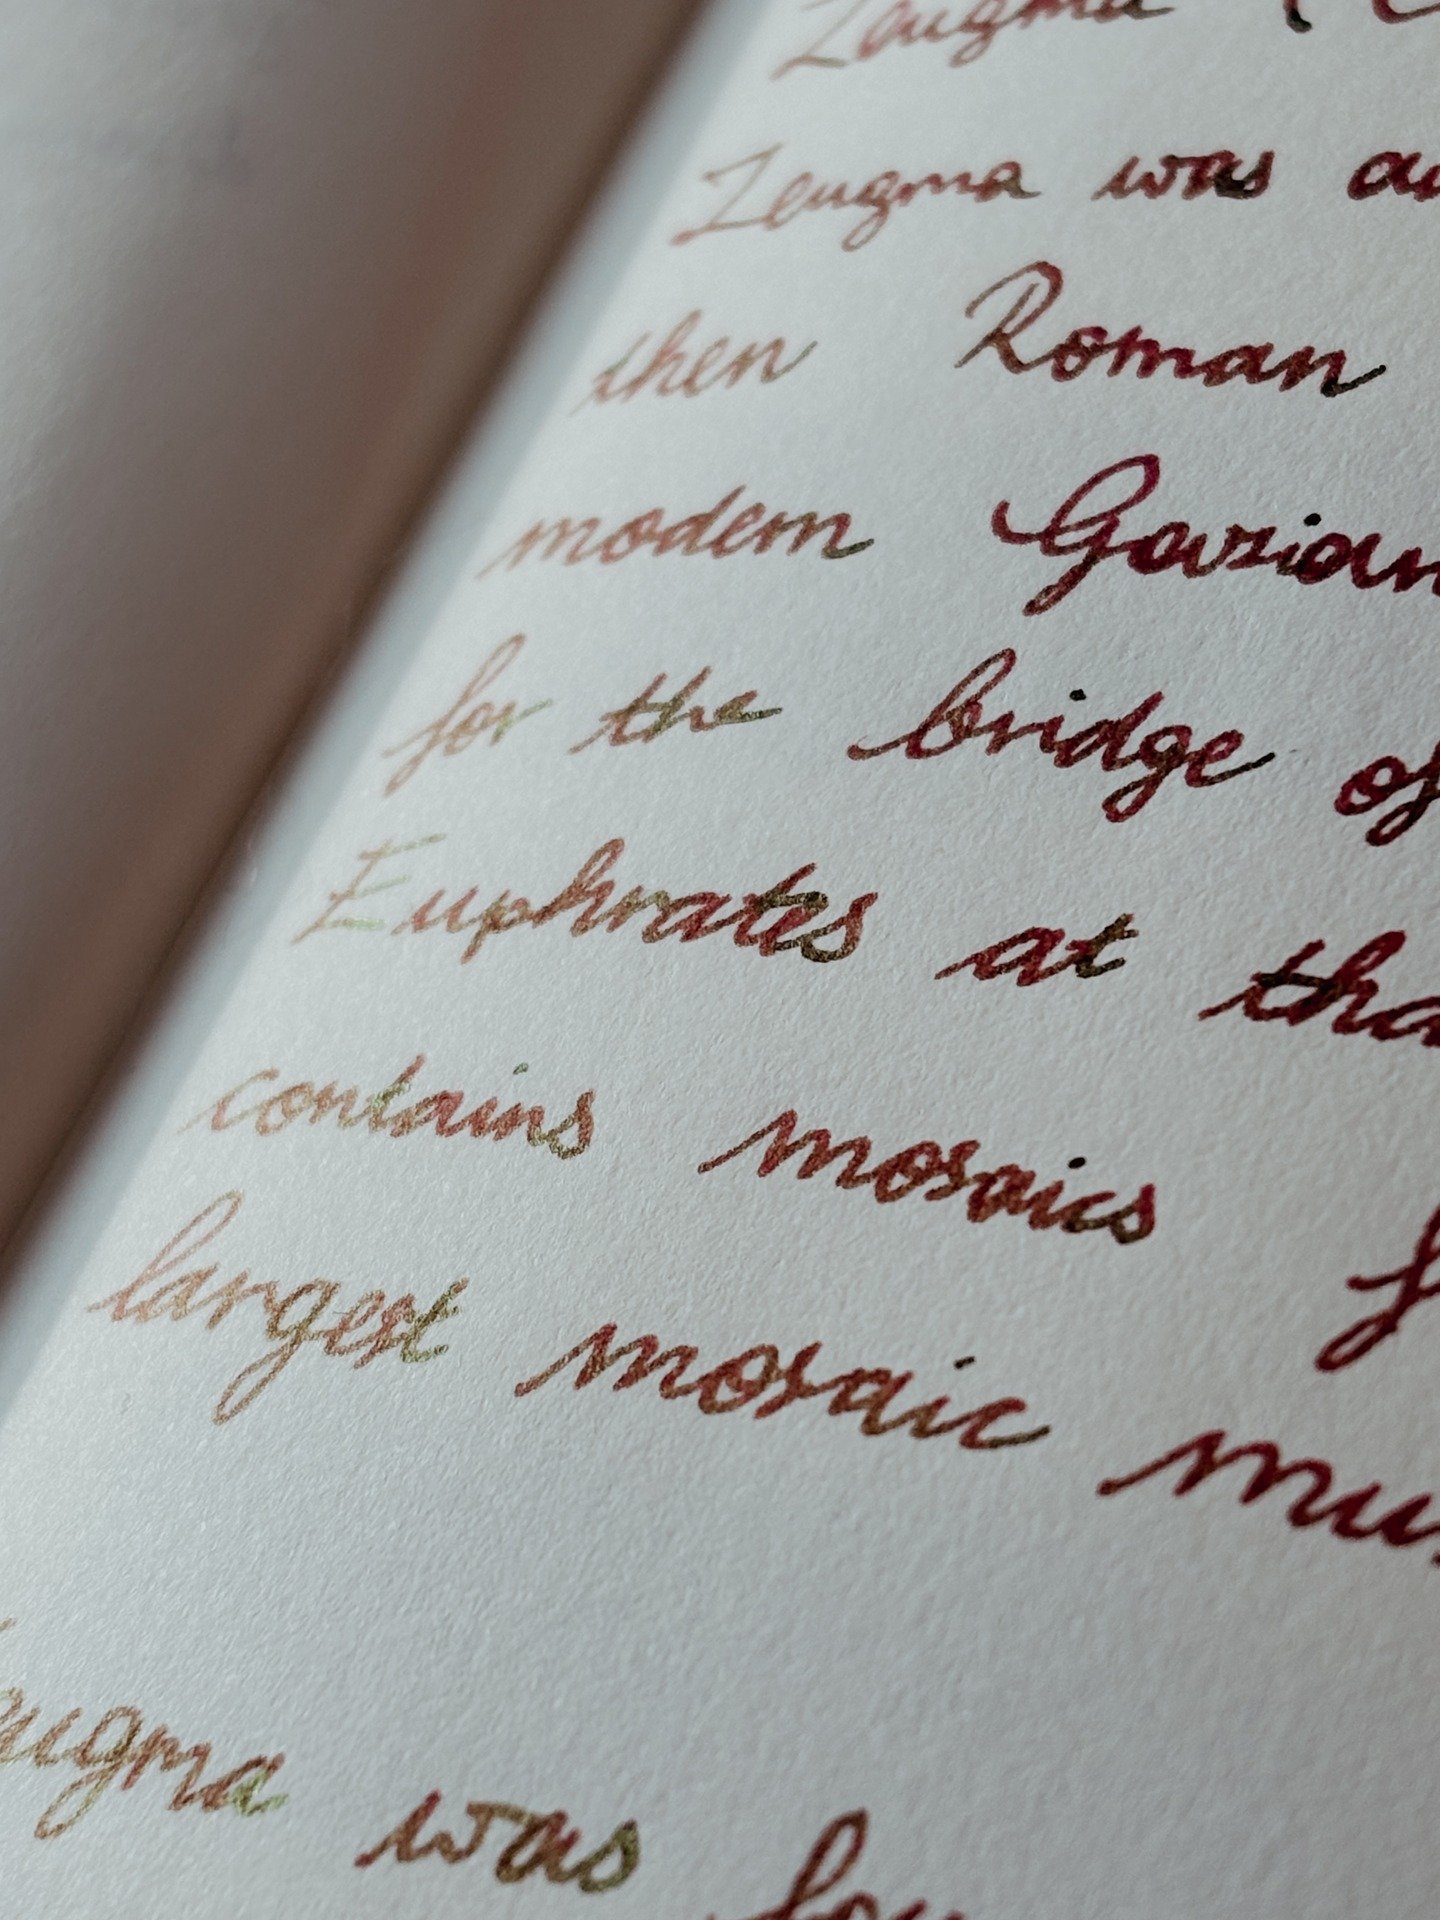 Zeugma (
Zeugma was
then Roman
modern Gazian
for the bridge of
Euphrates at tha
contains mosaics f
largest mosaic mu
eugma was fou